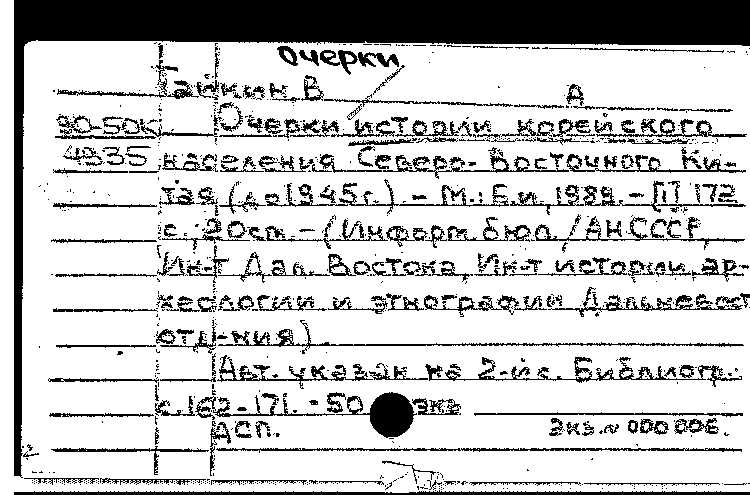 Очерки
Гайкин, В А
90-50К Очерки истории корейского
4935 населения Северо-Восточного Ки-
тая (до 1945г.) - М.: Б.и., 1989. - [1] 172
с.; 20см. - (Информ. бюл. / АН СССР,
Ин-т Дал. Востока, Ин-т истории, ар-
хеологии и этнографии Дальневост
отд-ния).
Авт. указан на 2-й с. Библиогр.:
с.162-171. - 50 экз
ДСП. Экз. № 000006.
2